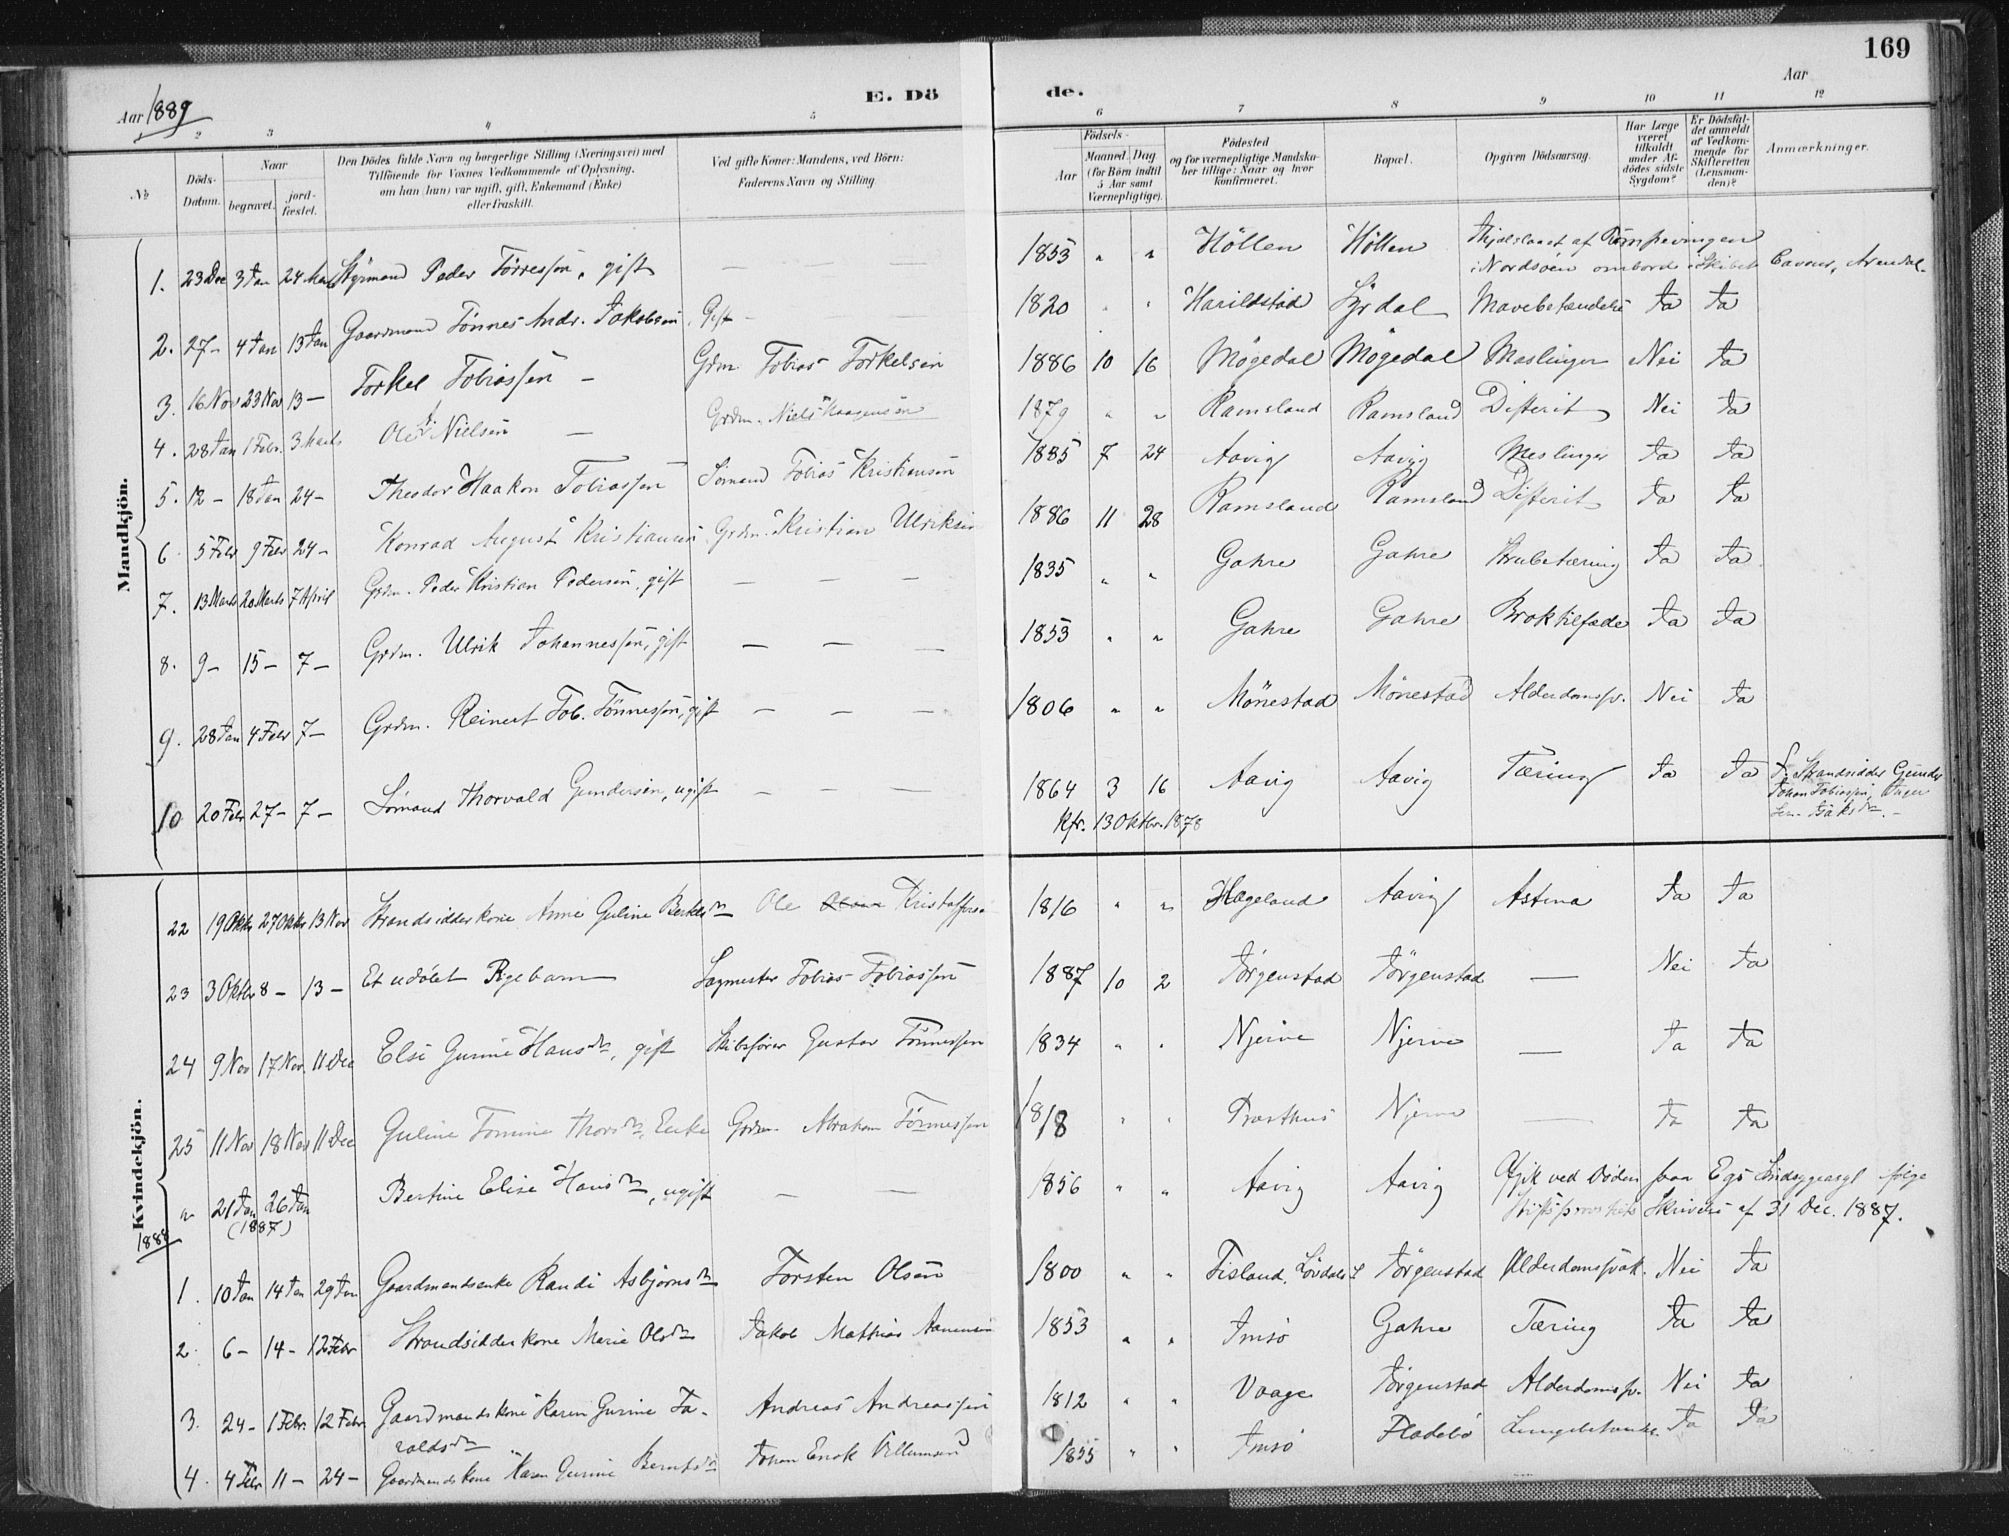 169
Aar 1889 E. Dö de. Aar
2 3 4 5 6 7 8 9 10 11 12
No Döds-Datum. Naar begravet. jordfæstet. Den Dödes fulde Navn og borgerlige Stilling (Næringsvei) med Tilföiende for Voxnes Vedkommende af Oplysning, om han (hun) var ugift, gift, Enkemand (Enke) eller fraskilt. Ved gifte Koner: Mandens, ved Börn: Faderens Navn og Stilling. Födsels- Aar Maaned. Dag (for Börn indtil 5 Aar samt Værnepligtige). Födested og for værnepligtige Mandskaber tillige: Naar og hvor konfirmeret. Bopæl. Opgiven Dödsaarsag. Har Læge været tilkaldt under Afdödes sidste Sygdom? Er Dödsfaldet anmeldt af Vedkommende for Skifteretten (Lensmanden)? Anmærkninger.
Mandkjön.
1. 23 Dec 3 Jan 24 Marts Styrmand Peder Törressen, gift — — — 1853 " " Höllen Höllen Ihjelslaaet af
i Nordsöen ombord i Skibet Cavour, Arendal.
2. 27 - 4 Jan 13 Jan Gaardmand Tönnes Andr. Jakobsen. Gift - 1820 " " Harildstad Lyrdal Mavebetændelse Ja Ja
3. 16 Nov 23 Nov 13 - Torkel Tobiassen - Grdm. Tobias Torkelsen 1886 10 16 Mögedal Mögedal Meslinger Nei Ja
4. 28 Jan 1 Febr. 3 Marts Ole Nielsen — Grdm. Niels Kaasensen 1879 " " Ramsland Ramsland Difterit Nei Ja
5. 12 - 18 Jan 24 - Theodor Haakon Tobiassen Sömand Tobias Kristiansen 1885 7 24 Aavig Aavig Meslinger Ja Ja
6. 5 Febr 9 Febr 24 - Konrad August Kristiansen Grdm. Kristian Ulriksen 1886 11 28 Ramsland Ramsland Difterit Ja Ja
7. 13 Marts 20 Marts 7 April Grdm. Peder Kristian Pedersen, gift — — — 1835 " " Gahre Gahre Strubetæring Ja Ja
8. 9 - 15 - 7 - Grdm. Ulrik Johannessen, gift — — — 1853 " " Gahre Gahre Broktilfælde Ja Ja
9. 28 Jan 4 Febr 7 - Grdm. Reinert Tob. Tönnessen, gift — — — 1806 " " Mönestad Mönestad Alderdomssv. Nei Ja
10 20 Febr 27 - 7 - Sömand Thorvald Gundersen, ugift — — — 1864 3 16 Aavig Aavig Tæring Ja Ja F. Strandsidder Gunder
Kfr. 13 Oktbr. 1878 Johan Tobiassen, Inger
Kvindekjön.
22 19 Oktbr 27 Oktbr 13 Nov Strandsidderkone Anne Guline Bertelsdr Ole Kristoffersen 1816 " " Hægeland Aavig Astma Ja Ja
23 3 Oktbr 8 - 13 - Et udöbt Pigebarn Sagmester Tobias Tobiassen 1887 10 2 Jörgenstad Jörgenstad — Nei Ja
24 9 Nov 17 Nov 11 Dec Else Gurine Hansdr, gift Skibsförer Gustav Tönnessen 1834 " " Njerve Njerve — Ja Ja
25 11 Nov 18 Nov 11 Dec Guline Tomine Thorsdr, Enke Grdm. Abraham Tönnessen 1818 " " Prasthus Njerve — Ja Ja
" 21 Jan 26 Jan Bertine Elise Hansdr, ugift — — 1856 " " Aavig Aavig Afgik ved Döden paa Egs Sindsygeasyl ifölge
(1887) Stiftsprostiets Skrivelse af 31 Dec. 1887.
1888
1. 10 Jan 14 Jan 29 Jan Gaardmandsenke Randi Asbjörnsdr Torsten Olsen 1800 " " Fisland, Lövdals S Jörgenstad Alderdomssvak. Nei Ja
2. 6 - 14 - 12 Febr Strandsidderkone Marie Olsdr Jakob Mathias Aanensen 1853 " " Imsö Gahre Tæring Ja Ja
3. 24 - 1 Febr. 12 Febr Gaardmandskone Karen Gurine Ta- Andreas Andreassen 1812 " " Vaage Jörgenstad Alderdomssv. Nei Ja
raldsdr
4. 4 Febr 11 - 24 - Gaardmandskone Karen Gurine Berntsdr Johan Enok Villumsen 1855 " " Imsö Fladebö Lungebetændelse Ja Ja